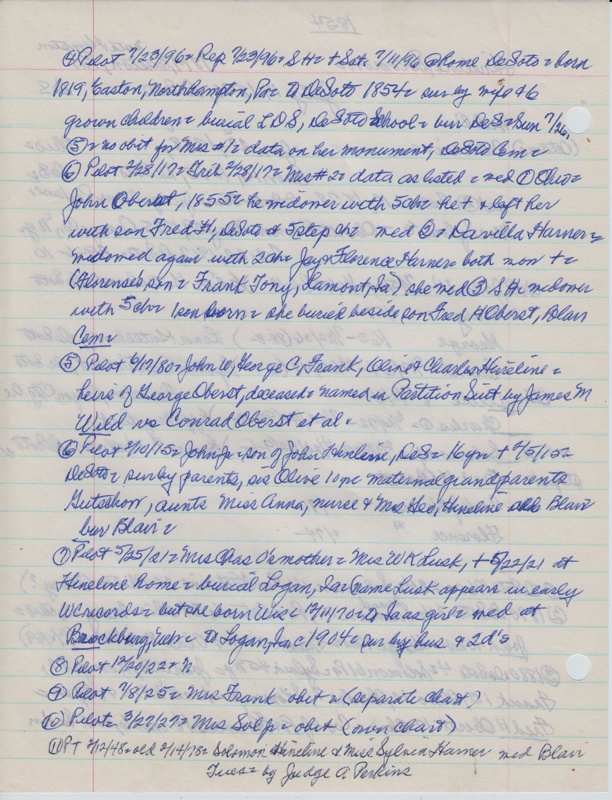 ④ Pilot 7/23/96 = Rep 7/23/96 = S H = + Sat 7/11/96 @ home DeSoto = born
1819, Easton, Northampton, Pa = to DeSoto 1854 = sur by wife & 6
grown children = burial L.D.S, DeSoto School = bur DeS = Sun 7/26,
⑤ = no obit for Mrs #1 = data on her monument, DeSoto Cem =
⑥ Pilot 2/28/17 = Trib 2/28/17 = Mrs #2 = data as listed = med ① Ohio =
John Oberst, 1855 = he widower with 5 ch = he + & left her
with son Fred H, DeSoto & 5 step ch = med ② = Davilla Harner =
widowed again with 2 ch = Jay & Florence Harner = both now + =
(Florence's son = Frank Tony, Lamont, Ia) she med ③ S H = widower
with 5 ch = 1 son born = she buried beside son Fred H Oberst, Blair
Cem =
⑤ Pilot 6/17/80 = John W, George C, Frank, Olive & Charles Hineline =
heirs of George Oberst, deceased = named in Partition Suit by James M
Wild vs Conrad Oberst et al =
⑥ Pilot 2/10/15 = John Jr = son of John Hineline, DeS = 16 yr = + 2/5/15 =
DeSoto = sur by parents, sis Olive 10 yr = maternal grandparents
Gutschow, aunts Miss Anna, nurse & Mrs Geo, Hineline Blair
bur Blair =
⑦ Pilot 5/25/21 = Mrs Chas O's mother = Mrs W K Lusk, + 5/22/21 at
Hineline home = burial Logan, Ia = name Lusk appears in early
WC records = but she born Wis = 12/11/70 = to Ia as girl = med at
= to Logan, Ia = 1904 = sur by hus & 2 d's
⑧ Pilot 12/20/22 = N
⑨ Pilot 7/8/25 = Mrs Frank obit = (separate chart)
⑩ Pilot = 3/27/27 = Mrs Sol Jr = obit (own chart)
⑪ PT 2/12/48 = old 2/14/78 = Solomon Hineline & Miss Sylvia Harner med Blair
Tues = by Judge A. Perkins